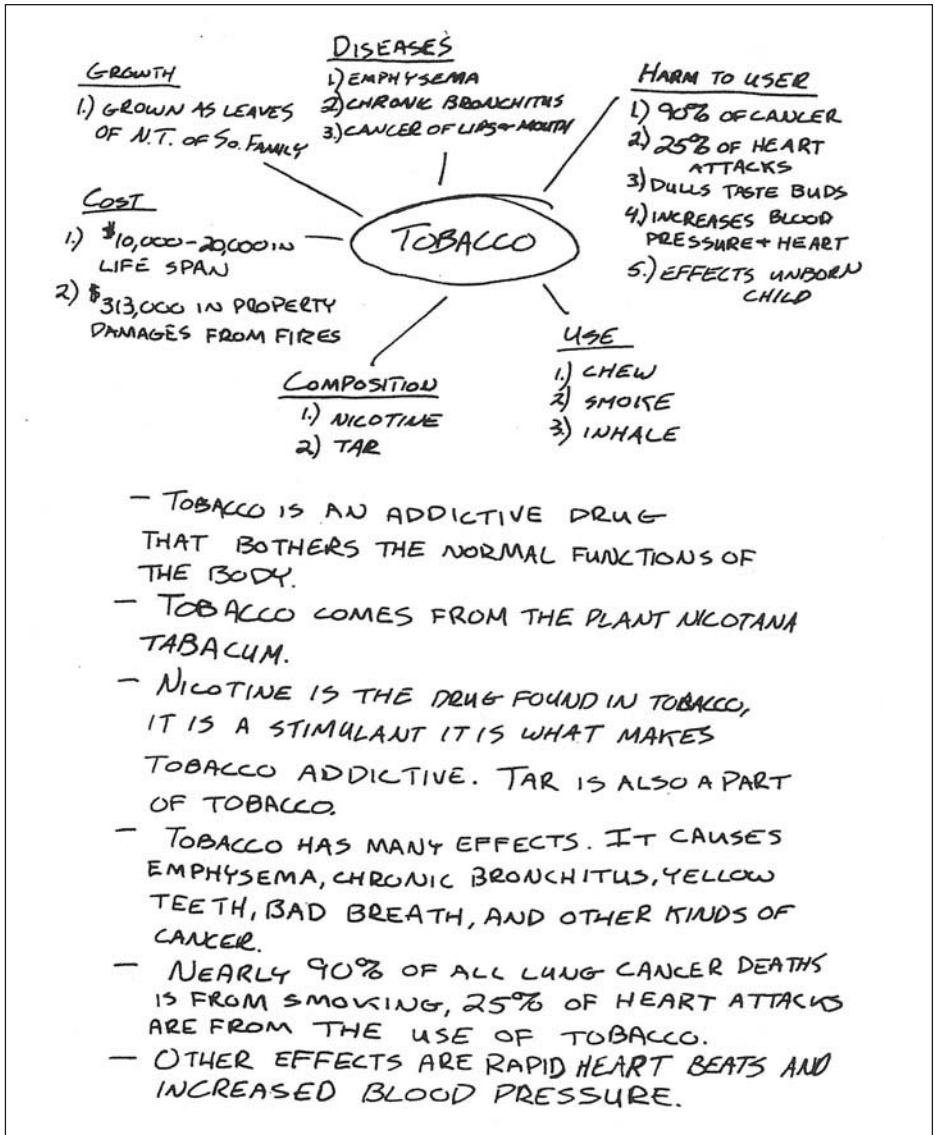 DISEASES
1.) EMPHYSEMA
2) CHRONIC BRONCHITUS
3.) CANCER OF LIPS & MOUTH
GROWTH
1.) GROWN AS LEAVES
OF N.T. OF SO. FAMILY
HARM TO USER
1) 90% OF CANCER
2) 25% OF HEART
ATTACKS
3) DULLS TASTE BUDS
4.) INCREASES BLOOD
PRESSURE + HEART
5.) EFFECTS UNBORN
CHILD
COST
1.) $10,000-20,000 IN
LIFE SPAN
2) $313,000 IN PROPERTY
DAMAGES FROM FIRES
TOBACCO
COMPOSITION
1.) NICOTINE
2) TAR
USE
1.) CHEW
2) SMOKE
3.) INHALE
- TOBACCO IS AN ADDICTIVE DRUG
THAT BOTHERS THE NORMAL FUNCTIONS OF
THE BODY.
- TOBACCO COMES FROM THE PLANT NICOTANA
TABACUM.
- NICOTINE IS THE DRUG FOUND IN TOBACCO,
IT IS A STIMULANT IT IS WHAT MAKES
TOBACCO ADDICTIVE. TAR IS ALSO A PART
OF TOBACCO.
- TOBACCO HAS MANY EFFECTS. IT CAUSES
EMPHYSEMA, CHRONIC BRONCHITUS, YELLOW
TEETH, BAD BREATH, AND OTHER KINDS OF
CANCER.
- NEARLY 90% OF ALL LUNG CANCER DEATHS
IS FROM SMOKING, 25% OF HEART ATTACKS
ARE FROM THE USE OF TOBACCO.
- OTHER EFFECTS ARE RAPID HEART BEATS AND
INCREASED BLOOD PRESSURE.